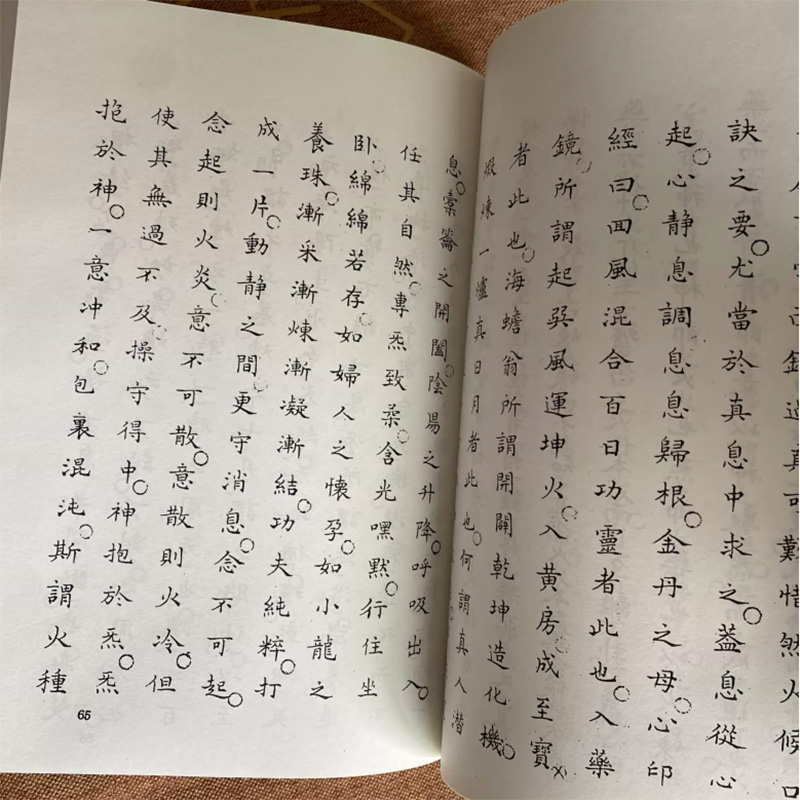 真可難惜然火候
訣之要。尤當於真息中求之。蓋息從心
起。心静息調。息息歸根。金丹之母。心印
經曰。回風混合百日功靈者此也。入藥
鏡。所謂起巽風運坤火。入黄房。成至寶
者此也。海蟾翁所謂開闢乾坤造化機。
煅煉一爐真日月者此也。何謂真人潛
息。橐籥之開闔。陰陽之升降。呼吸出入。
任其自然。專炁致柔。含光嘿默。行住坐
卧。綿綿若存。如婦人之懷孕。如小龍之
養珠。漸采漸煉漸凝漸結。功夫純粹。打
成一片。動静之間。更守消息。念不可起。
念起則火炎。意不可散。意散則火冷。但
使其無過不及。操守得中。神抱於炁。炁
抱於神。一意冲和。包裹混沌。斯謂火種
65